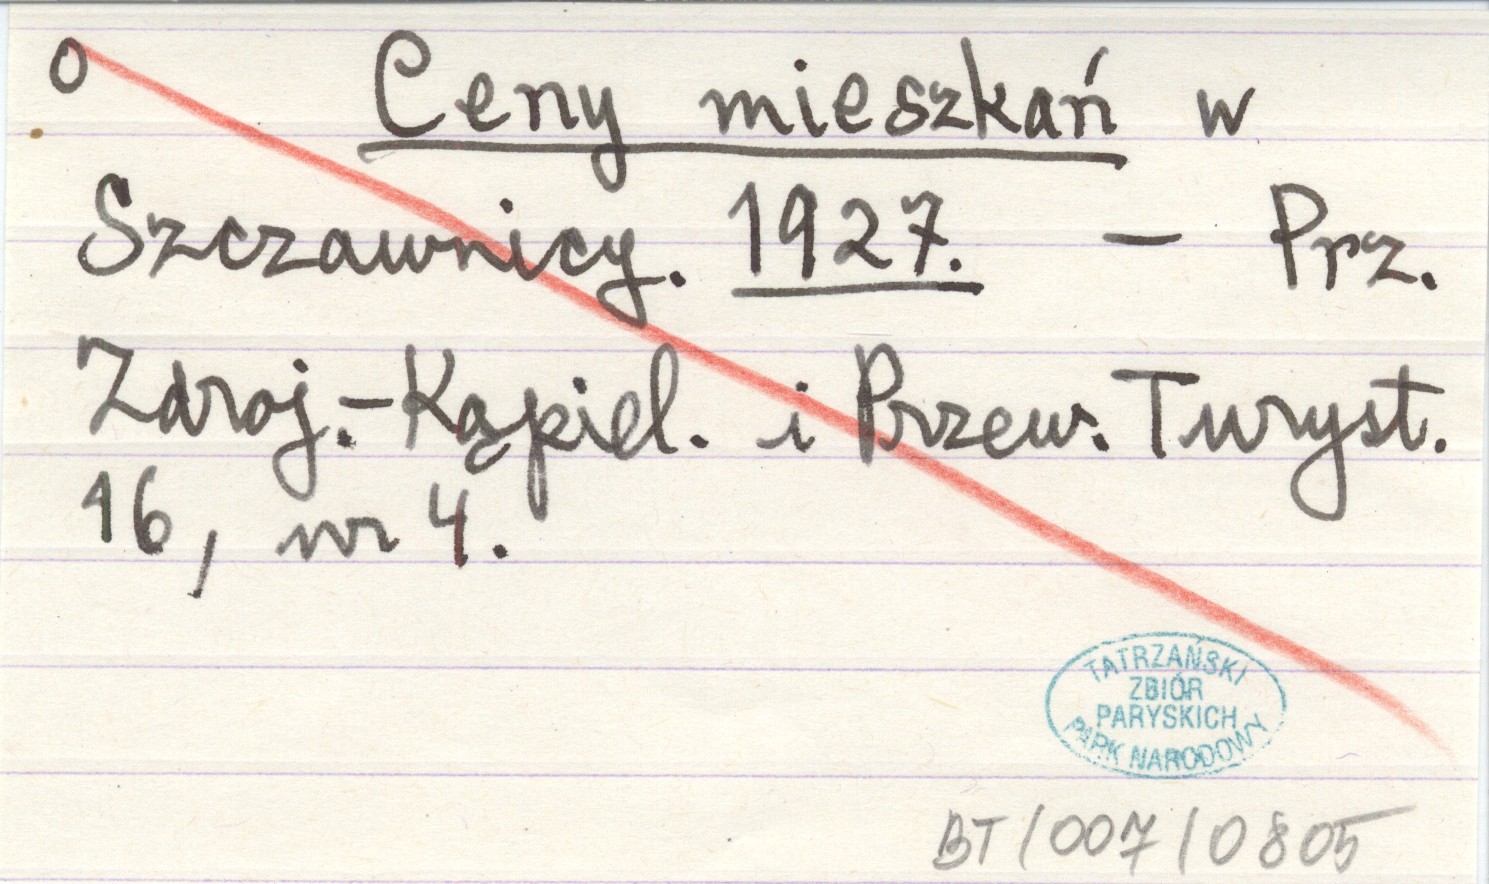 O Ceny mieszkań w
Szczawnicy. 1927. – Prz.
Zdroj.-Kąpiel. i Przew. Turyst.
16, nr 4.
TATRZAŃSKI
ZBIÓR
PARYSKICH
PARK NARODOWY
BT/007/0805